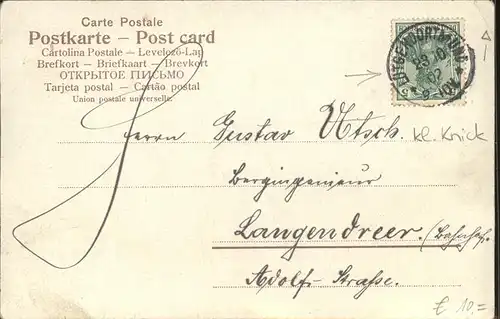 Carte Postale
Postkarte – Post card
Cartolina Postale – Levelező-Lap
Brefkort – Briefkaart – Brevkort
ОТКРЫТОЕ ПИСЬМО
Tarjeta postal – Cartão postal
Union postale universelle.
LÜTGENDORTMUND
02
Herrn Gustav Utsch.
kl. Knick
Bergingenieur
Langendreer. (Bahnhof.
Adolf-Strasse.
€ 10,=